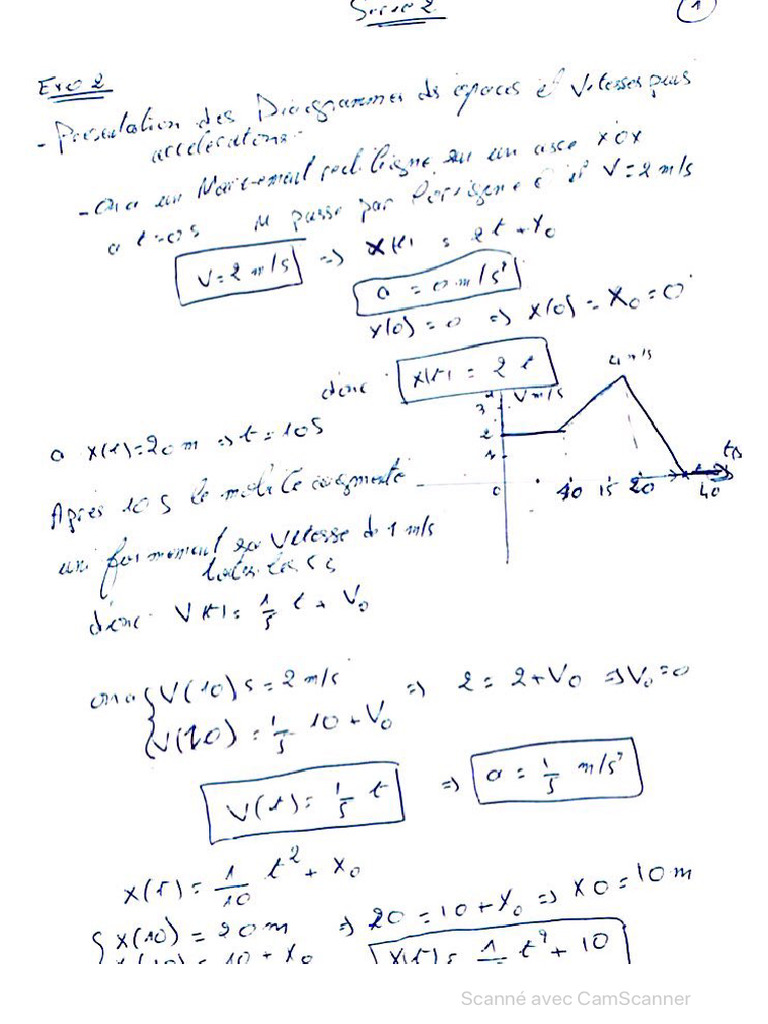 Serie 2
1
Exo 2
- Presentation des Diagrammes des espaces et Vitesses puis
accelerations.
- On a un Mouvement rectiligne sur un axe x'ox
a t=0s M passe par l'origine 0 et V=2m/s
V=2m/s => x(t) = 2t+X0
a = 0 m/s²
x(0) = 0 => x(0) = X0 = 0
donc x(t) = 2t
a x(t)=20m => t=10s
4m/s
V m/s
3
2
1
0 10 15 20 40 ts
Après 10s le mobile augmente
uniformement sa Vitesse de 1m/s
toutes les 5s
donc V(t) = 1/5 t + V0
on a { V(10)s = 2m/s => 2 = 2+V0 => V0=0
V(10) = 1/5 10 + V0
V(t) = 1/5 t => a = 1/5 m/s²
x(t) = 1/10 t² + x0
{ x(10) = 20m => 20 = 10+X0 => X0 = 10m
x(10) = 10 + x0 x(t) = 1 t² + 10
Scanné avec CamScanner